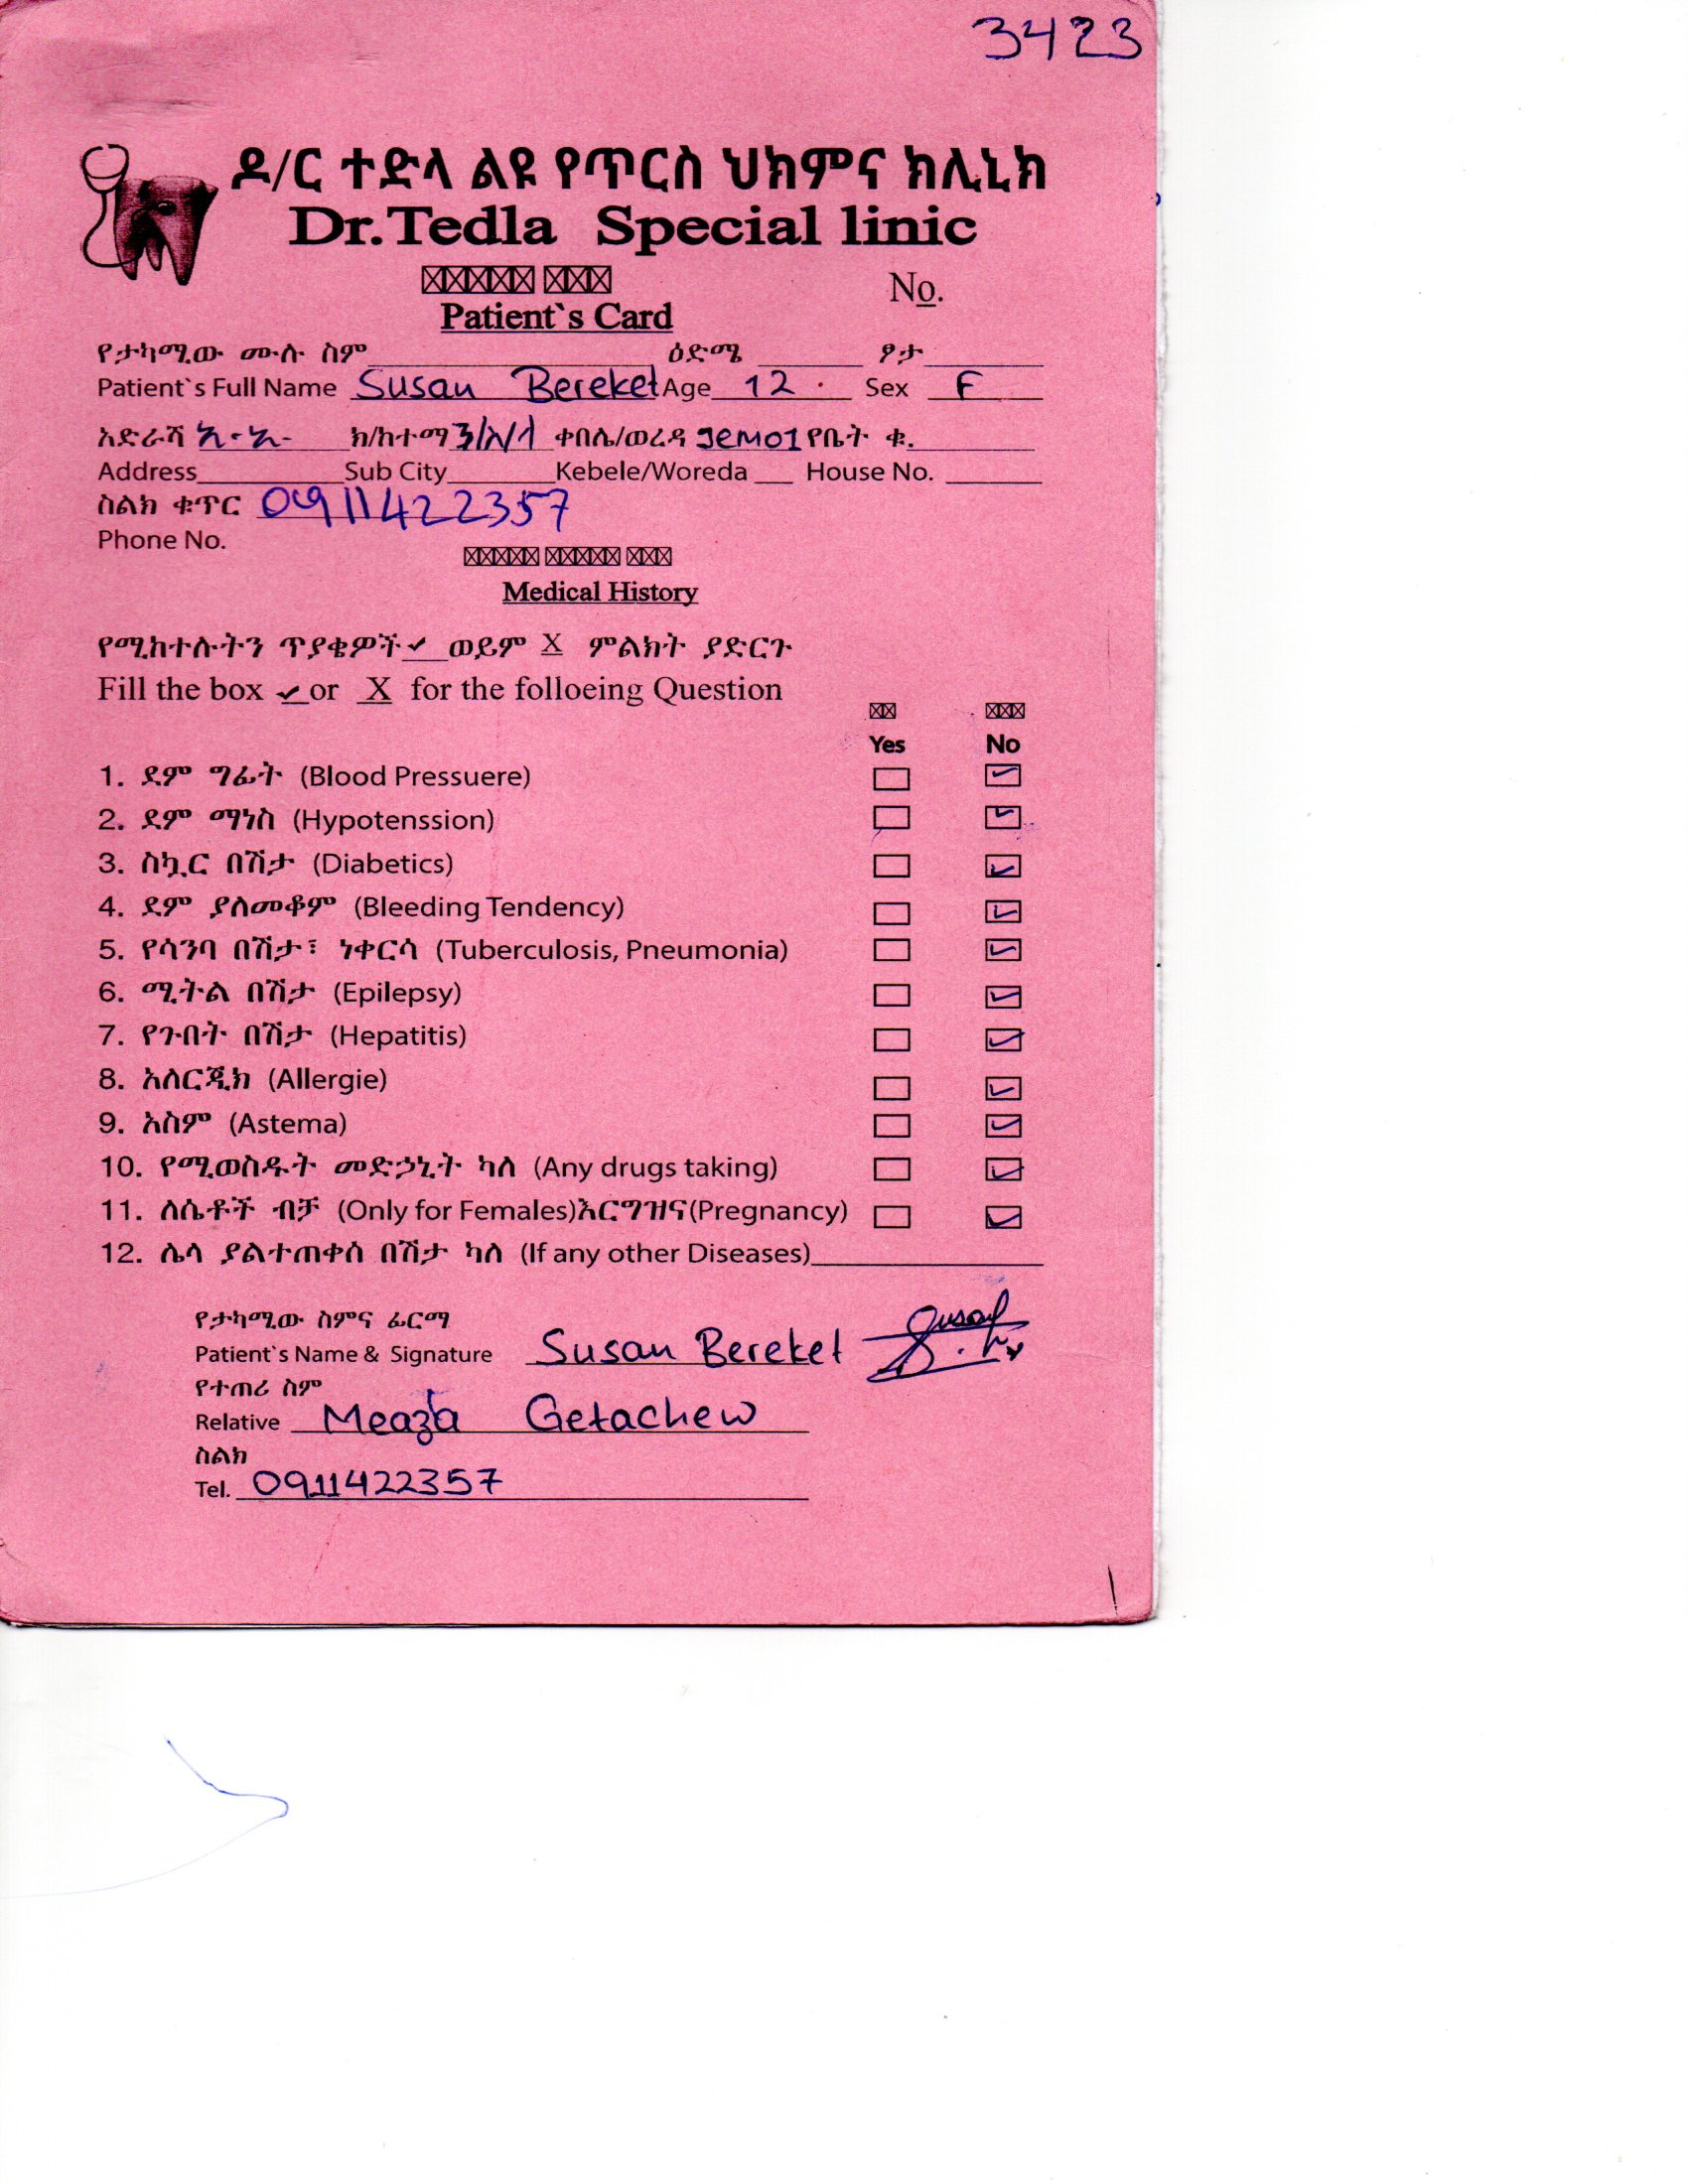 3423
ዶ/ር ተድላ ልዩ የጥርስ ህክምና ክሊኒክ
Dr. Tedla Special linic
No.
Patient`s Card
የታካሚው ሙሉ ስም ዕድሜ ፆታ
Patient`s Full Name Susan Bereket Age 12 Sex F
አድራሻ አ.አ. ክ/ከተማ ቀበሌ/ወረዳ JEMO1 የቤት ቁ.
Address Sub City Kebele/Woreda House No.
ስልክ ቁጥር 0911422357
Phone No.
Medical History
የሚከተሉትን ጥያቄዎች ✓ ወይም X ምልክት ያድርጉ
Fill the box ✓ or X for the folloeing Question
Yes No
1. ደም ግፊት (Blood Pressuere) ☐ ☑
2. ደም ማነስ (Hypotenssion) ☐ ☑
3. ስኳር በሽታ (Diabetics) ☐ ☑
4. ደም ያለመቆም (Bleeding Tendency) ☐ ☑
5. የሳንባ በሽታ፣ ነቀርሳ (Tuberculosis, Pneumonia) ☐ ☑
6. ሚትል በሽታ (Epilepsy) ☐ ☑
7. የጉበት በሽታ (Hepatitis) ☐ ☑
8. አለርጂክ (Allergie) ☐ ☑
9. አስም (Astema) ☐ ☑
10. የሚወስዱት መድኃኒት ካለ (Any drugs taking) ☐ ☑
11. ለሴቶች ብቻ (Only for Females)እርግዝና(Pregnancy) ☐ ☑
12. ሌላ ያልተጠቀሰ በሽታ ካለ (If any other Diseases)
የታካሚው ስምና ፊርማ
Patient`s Name & Signature Susan Bereket
የተጠሪ ስም
Relative Meaza Getachew
ስልክ
Tel. 0911422357